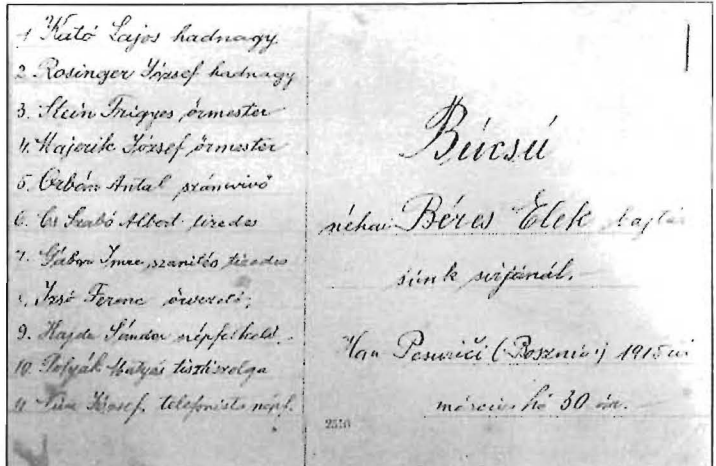 1 Kutó Lajos hadnagy
2. Rosinger József hadnagy
3. Stein Frigyes őrmester
4. Majerik József őrmester
5. Orbán Antal számvivő
6. Cs Szabó Albert tizedes
7. Gábor Imre szanités tizedes
Izsó Ferenc őrvezető;
9. Hajdu Sándor népfelkelő.
10. Polyák Mátyás tisztiszolga
11 József. telefonista népf.
Búcsú
néhai Béres Elek bajtár
sunk sírjánál.
Han (Bosznia) 1915 évi
március hó 30 án.
2510